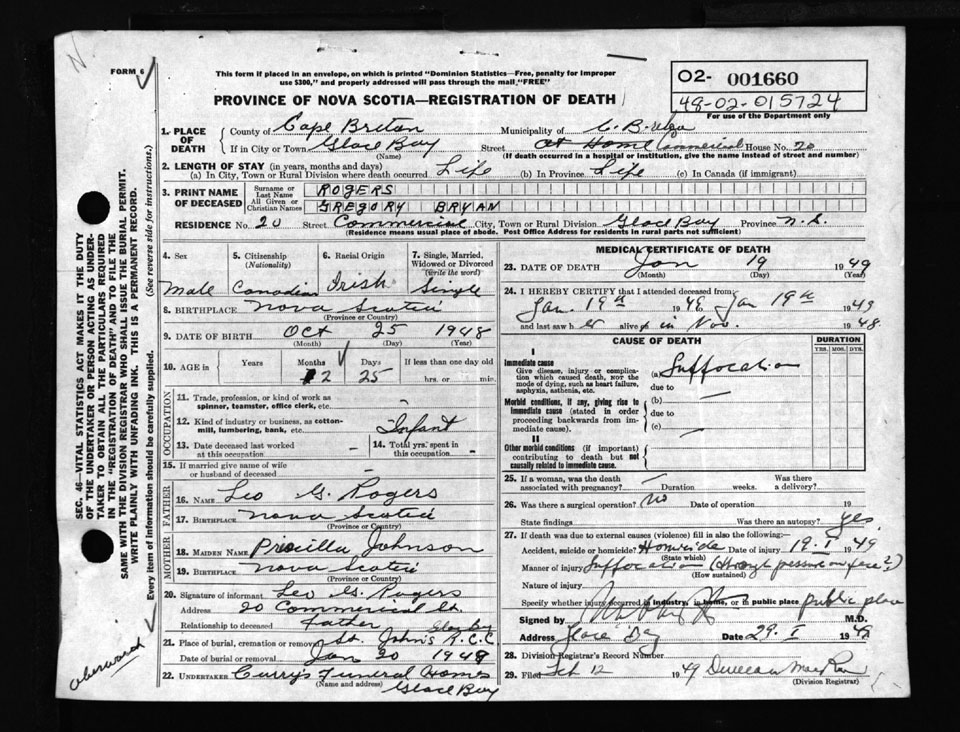 N
FORM 6
This form if placed in an envelope, on which is printed "Dominion Statistics—Free, penalty for improper
use $300," and properly addressed will pass through the mail "FREE"
02- 001660
48-02-015724
For use of the Department only
PROVINCE OF NOVA SCOTIA—REGISTRATION OF DEATH
1. PLACE OF DEATH
County of Cape Breton Municipality of C. B.
If in City or Town Glace Bay Street At Home Commercial House No. 20
(Name) (If death occurred in a hospital or institution, give the name instead of street and number)
2. LENGTH OF STAY (in years, months and days)
(a) In City, Town or Rural Division where death occurred Life (b) In Province Life (c) In Canada (if immigrant)
3. PRINT NAME OF DECEASED
Surname or Last Name ROGERS
All Given or Christian Names GREGORY BRYAN
RESIDENCE No. 20 Street Commercial City, Town or Rural Division Glace Bay Province N.S.
(Residence means usual place of abode. Post Office Address for residents in rural parts not sufficient)
4. Sex
Male
5. Citizenship (Nationality)
Canadian
6. Racial Origin
Irish
7. Single, Married, Widowed or Divorced (write the word)
Single
8. BIRTHPLACE Nova Scotia
(Province or Country)
9. DATE OF BIRTH Oct 25 1948
(Month) (Day) (Year)
10. AGE in Years Months Days If less than one day old
2 25 hrs. or min.
OCCUPATION
11. Trade, profession, or kind of work as spinner, teamster, office clerk, etc. —
12. Kind of industry or business, as cotton-mill, lumbering, bank, etc. Infant
13. Date deceased last worked at this occupation —
14. Total yrs. spent in this occupation —
15. If married give name of wife or husband of deceased —
FATHER
16. NAME Leo G. Rogers
17. BIRTHPLACE Nova Scotia
(Province or Country)
MOTHER
18. MAIDEN NAME Priscilla Johnson
19. BIRTHPLACE Nova Scotia
(Province or Country)
20. Signature of informant Leo G. Rogers
Address 20 Commercial St.
Relationship to deceased Father
21. Place of burial, cremation or removal St. John's R.C.C.
Date of burial or removal Jan 20 1949
22. UNDERTAKER Curry's Funeral Home
(Name and address) Glace Bay
MEDICAL CERTIFICATE OF DEATH
23. DATE OF DEATH Jan 19 1949
(Month) (Day) (Year)
24. I HEREBY CERTIFY that I attended deceased from:
Jan. 19th 1949, Jan 19th 1949
and last saw h alive in Nov. 1948.
CAUSE OF DEATH
DURATION
YRS. MOS. DYS.
I
Immediate cause
Give disease, injury or complication which caused death, not the mode of dying, such as heart failure, asphyxia, asthenia, etc.
(a) Suffocation
due to
Morbid conditions, if any, giving rise to immediate cause (stated in order proceeding backwards from immediate cause).
(b) —
due to
(c) —
II
Other morbid conditions (if important) contributing to death but not causally related to immediate cause.
25. If a woman, was the death associated with pregnancy? — Duration weeks. Was there a delivery?
26. Was there a surgical operation? No Date of operation 19
State findings Was there an autopsy? yes
27. If death was due to external causes (violence) fill in also the following:
Accident, suicide or homicide? Homicide Date of injury 19. I 1949
(State which)
Manner of injury Suffocation (through pressure on face?)
(How sustained)
Nature of injury
Specify whether injury occurred in industry, in home, or in public place public place
Signed by M.D.
Address Glace Bay Date 29. I 1949
28. Division Registrar's Record Number
29. Filed Feb 12 1949 Duncan MacRae
(Division Registrar)
SEC. 46—VITAL STATISTICS ACT MAKES IT THE DUTY
OF THE UNDERTAKER OR PERSON ACTING AS UNDER-
TAKER TO OBTAIN ALL THE PARTICULARS REQUIRED
IN THE "REGISTRATION OF DEATH" AND TO FILE THE
SAME WITH THE DIVISION REGISTRAR WHO SHALL ISSUE THE BURIAL PERMIT.
WRITE PLAINLY WITH UNFADING INK. THIS IS A PERMANENT RECORD.
Every item of information should be carefully supplied. (See reverse side for instructions.)